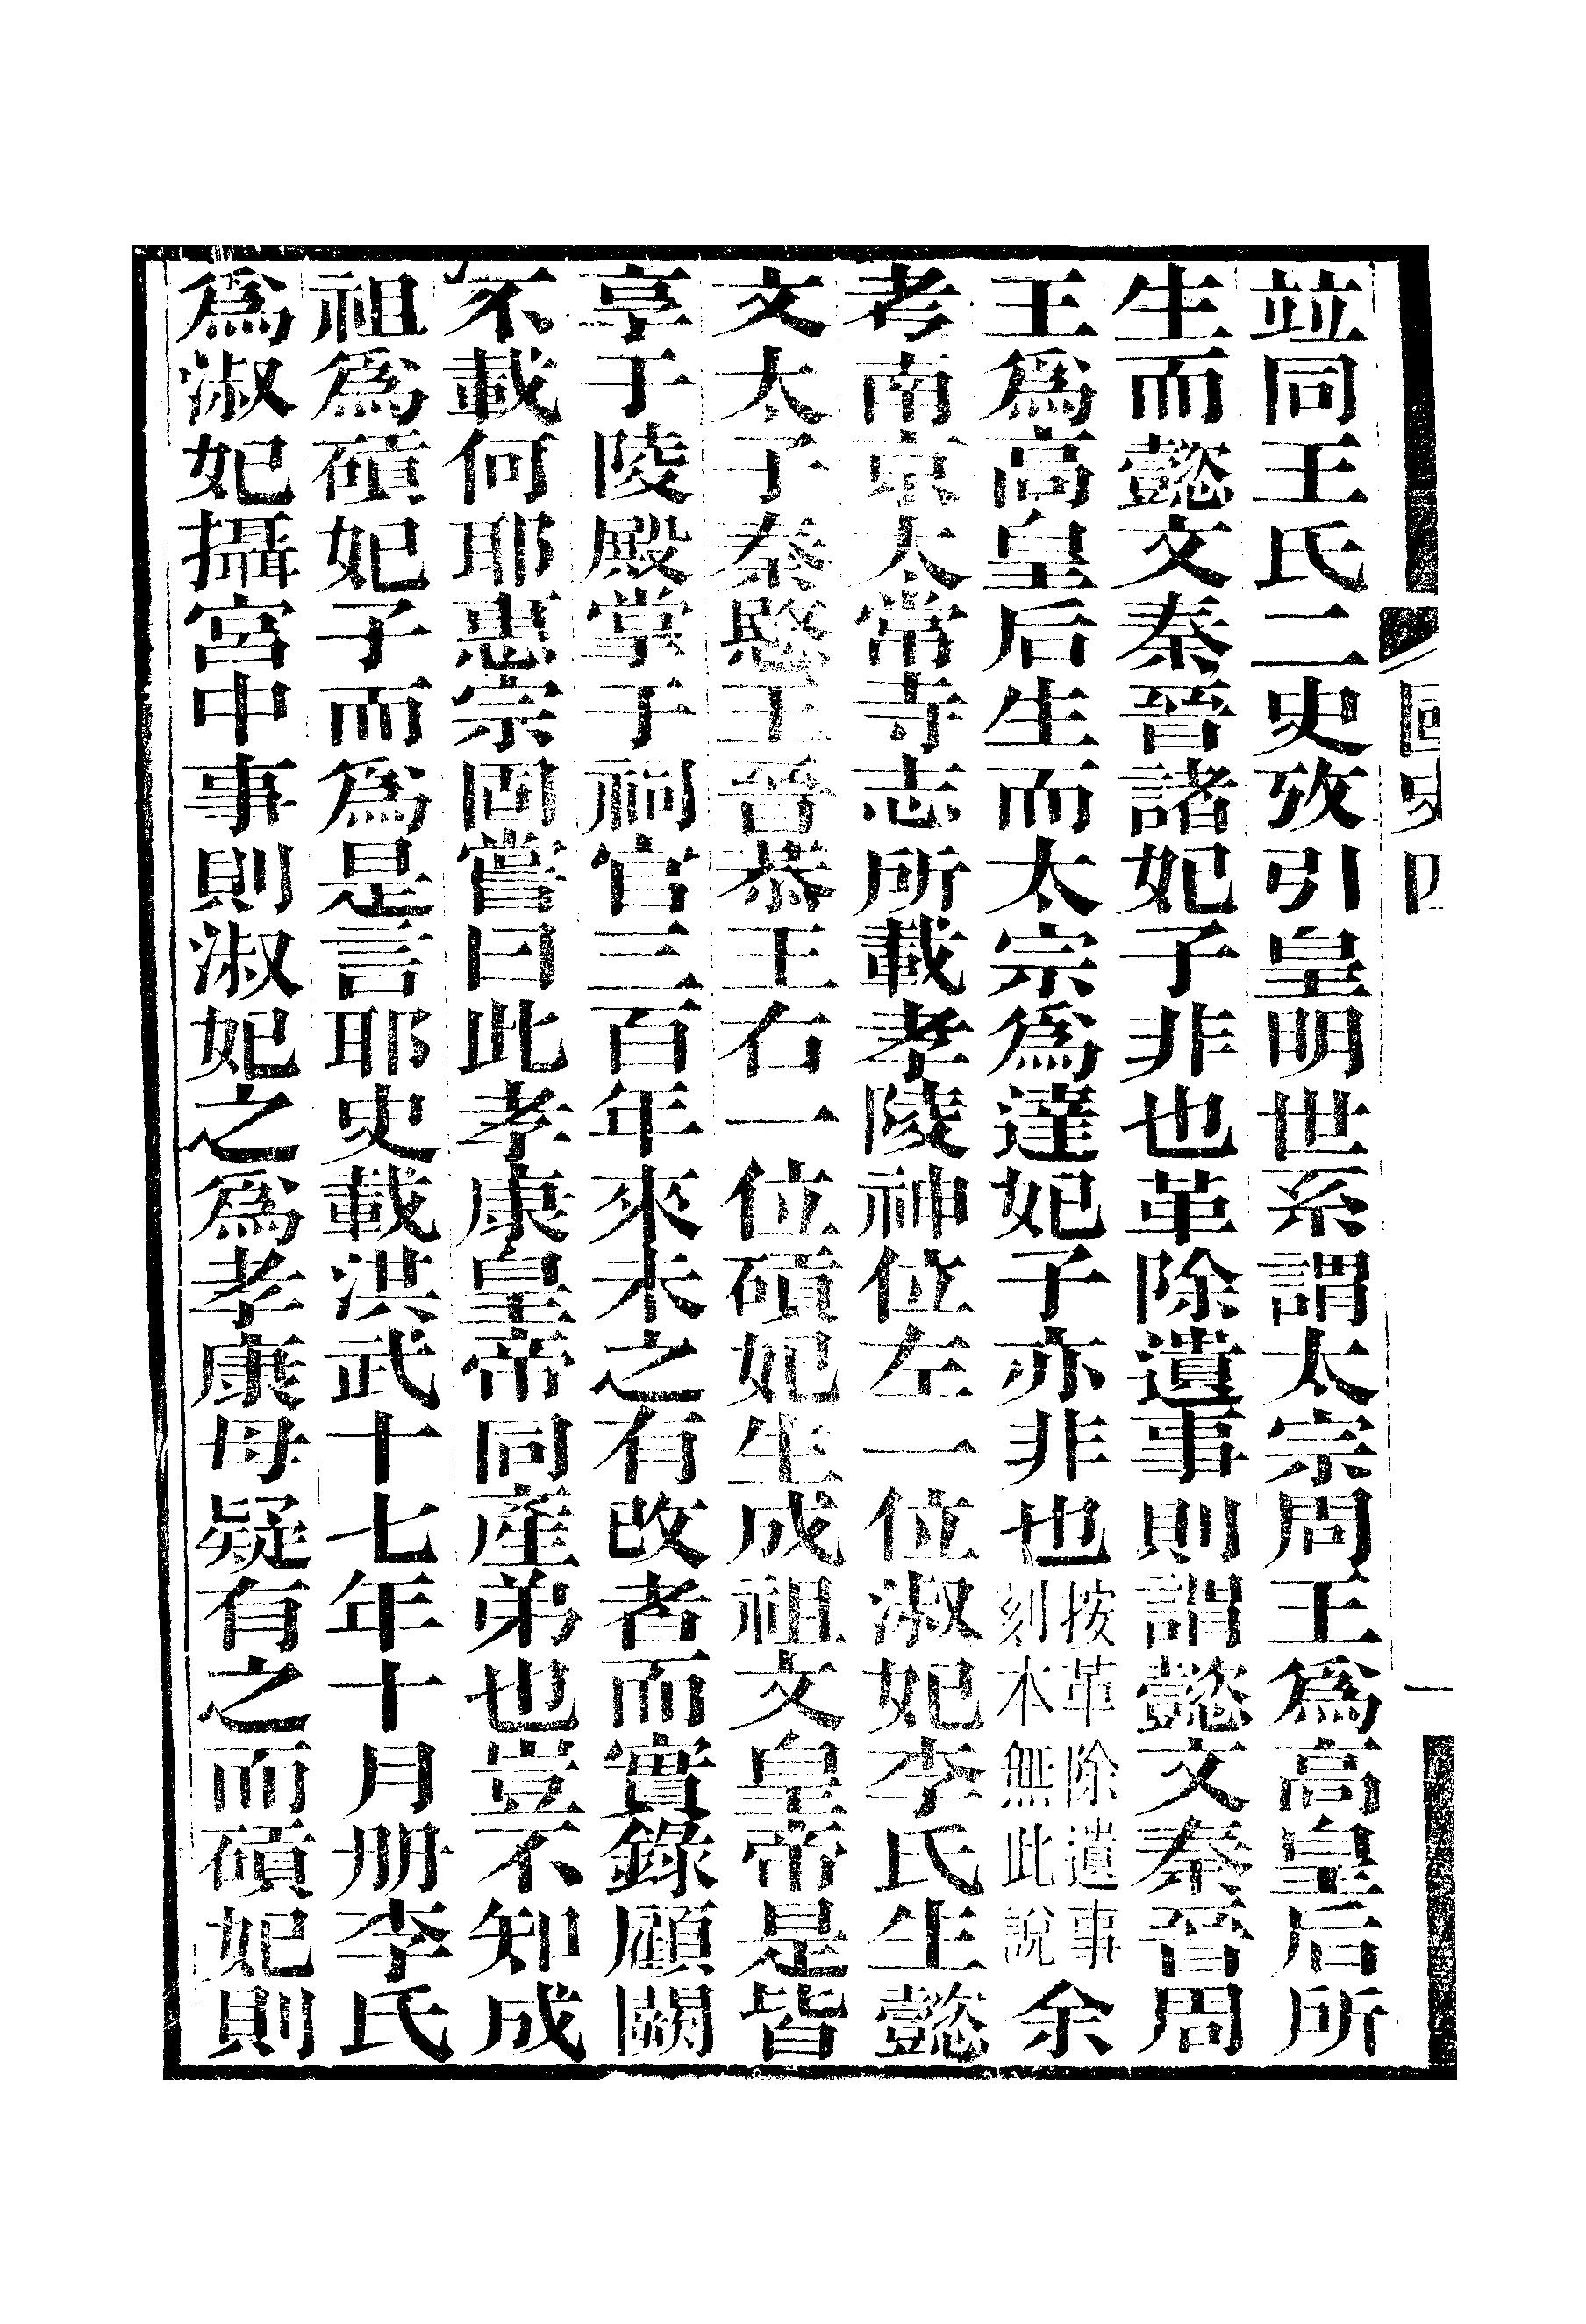 竝同王氏二史攷引皇明世系謂太宗周王為高皇后所
生而懿文秦晉諸妃子非也革除遺事則謂懿文秦晉周
王為高皇后生而太宗為達妃子亦非也按革除遺事刻本無此說余
考南京太常寺志所載孝陵神位左一位淑妃李氏生懿
文太子秦愍王晉恭王右一位碽妃生成祖文皇帝是皆
享于陵殿掌于祠官三百年來未之有改者而實錄顧闕
不載何耶惠宗固嘗曰此孝康皇帝同產弟也豈不知成
祖為碽妃子而為是言耶史載洪武十七年十月册李氏
為淑妃攝宮中事則淑妃之為孝康母疑有之而碽妃則
國史四
一